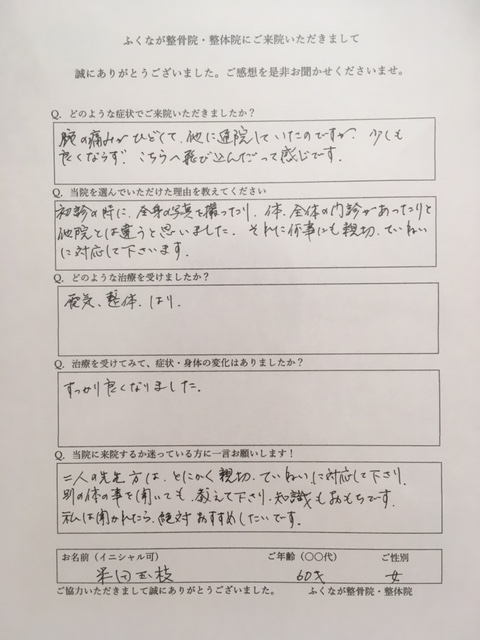 ふくなが整骨院・整体院にご来院いただきまして
誠にありがとうございました。ご感想を是非お聞かせくださいませ。
Q. どのような症状でご来院いただきましたか？
腕の痛みがひどくて、他に通院していたのですが、少しも
良くならず、こちらへ飛び込んだって感じです。
Q. 当院を選んでいただけた理由を教えてください
初診の時に、全身の写真を撮ったり、体、全体の内診があったりと
他院とは違うと思いました。それに何事にも親切、ていねい
に対応して下さいます。
Q. どのような治療を受けましたか？
電気、整体、はり、
Q. 治療を受けてみて、症状・身体の変化はありましたか？
すっかり良くなりました。
Q. 当院に来院するか迷っている方に一言お願いします！
二人の先生方は、とにかく親切、ていねいに対応して下さり、
別の体の事を聞いても、教えて下さり、知識もおもちです。
私は聞かれたら、絶対おすすめしたいです。
お名前（イニシャル可） ご年齢（〇〇代） ご性別
田 枝 60才 女
ご協力いただきまして誠にありがとうございました。 ふくなが整骨院・整体院